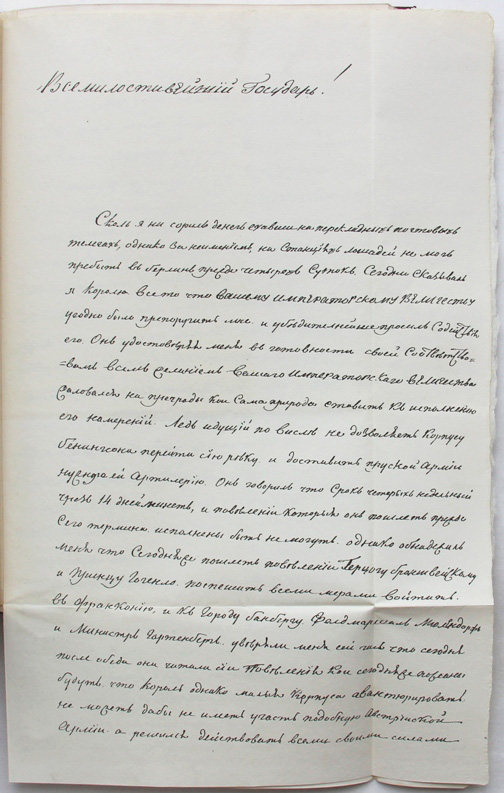 Всемилостивѣйшій Государь!
Сколь я ни сорилъ денегъ ехавши на перекладныхъ почтовыхъ
телегахъ, однако за неименіемъ, на Станціяхъ лошадей не могъ
прибыть въ берлинъ прежде четырехъ Сутокъ. Сегодни Сказывалъ
я Королю все то что вашему императорскому величеству
угодно было препоручить мне, и убѣдительнейше просилъ Содействія
его. Онъ удостовѣрялъ меня въ готовности своей Соответство-
=вать всемъ желаніемъ вашего императорскаго величества
Жаловался на преграды кои Сама природа ставитъ въ исполненію
его намереній. Ледъ идущій по висле не дозволяетъ Корпусу
бенингсона перейти сію рѣку, и доставить пруской Арміи
нужную ей Артилерію. Онъ говорилъ что Срокъ четырехъ недельный
чрезъ 14 дней минетъ, и повеленіи которыя онъ пошлетъ прежде
Сего термина исполнены быть не могутъ. однако обнадежилъ
меня что Сегодня же пошлетъ повеленіи Герцогу брауншвейскому
и Принцу Гогенло. поспешить всеми мерами войтить
въ франконію, и къ Городу бамбергу. Фелдмаршалъ Мелендорфъ
и Министръ Гартенбергъ, уверяли меня сей часъ что сегодня
после обеда они читали сіи Повеленіи кои сегодня же посланы
будутъ. что король однако малыя Корпуса авантюрировать
не можетъ дабы не иметь участь подобную Австрійской
Арміи. а решился действовать всеми своими силами